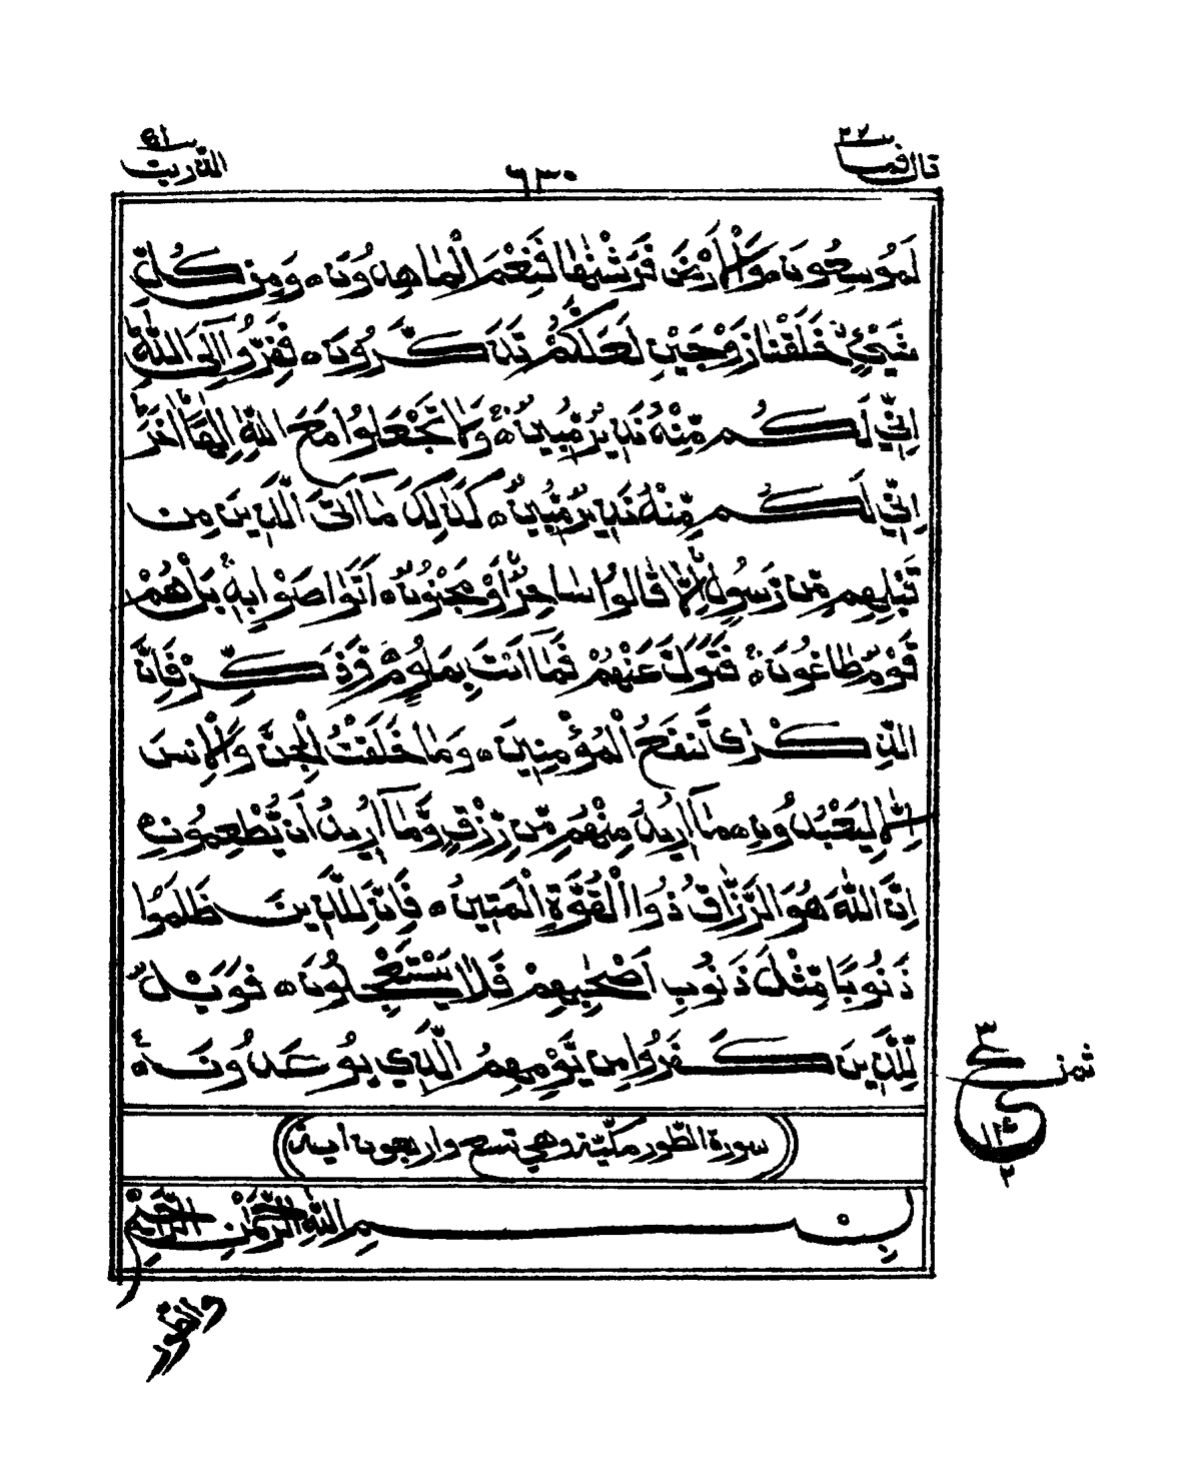 قال فما ٢٧
٦٣٠
الذريت ٥١
لَمُوسِعُونَ ۝ وَالْاَرْضَ فَرَشْنٰهَا فَنِعْمَ الْمَاهِدُونَ ۝ وَمِنْ كُلِّ
شَيْءٍ خَلَقْنَا زَوْجَيْنِ لَعَلَّكُمْ تَذَكَّرُونَ ۝ فَفِرُّوا اِلَى اللّٰهِ
اِنِّي لَكُمْ مِّنْهُ نَذِيرٌ مُّبِينٌ ۝ وَلَا تَجْعَلُوا مَعَ اللّٰهِ اِلٰهًا اٰخَرَ
اِنِّي لَكُمْ مِّنْهُ نَذِيرٌ مُّبِينٌ ۝ كَذٰلِكَ مَا اَتَى الَّذِينَ مِن
قَبْلِهِمْ مِّن رَّسُولٍ اِلَّا قَالُوا سَاحِرٌ اَوْ مَجْنُونٌ ۝ اَتَوَاصَوْا بِهٖ بَلْ هُمْ
قَوْمٌ طَاغُونَ ۝ فَتَوَلَّ عَنْهُمْ فَمَا اَنْتَ بِمَلُومٍ ۝ وَذَكِّرْ فَاِنَّ
الذِّكْرٰى تَنْفَعُ الْمُؤْمِنِينَ ۝ وَمَا خَلَقْتُ الْجِنَّ وَالْاِنسَ
اِلَّا لِيَعْبُدُونِ ۝ مَا اُرِيدُ مِنْهُمْ مِّن رِّزْقٍ وَّمَا اُرِيدُ اَن يُّطْعِمُونِ ۝
اِنَّ اللّٰهَ هُوَ الرَّزَّاقُ ذُوا الْقُوَّةِ الْمَتِينُ ۝ فَاِنَّ لِلَّذِينَ ظَلَمُوا
ذَنُوبًا مِّثْلَ ذَنُوبِ اَصْحٰبِهِمْ فَلَا يَسْتَعْجِلُونَ ۝ فَوَيْلٌ
لِّلَّذِينَ كَفَرُوا مِن يَّوْمِهِمُ الَّذِي يُوعَدُونَ ۝
ع ٣ ٢
ثمن
سورة الطور مكية وهي تسع واربعون اية
بِسْمِ اللّٰهِ الرَّحْمٰنِ الرَّحِيمِ
والطور